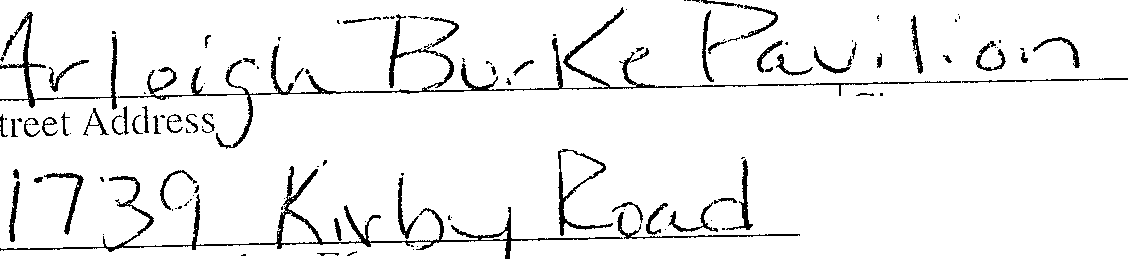 Arleigh Burke Pavilion
treet Address
1739 Kirby Road